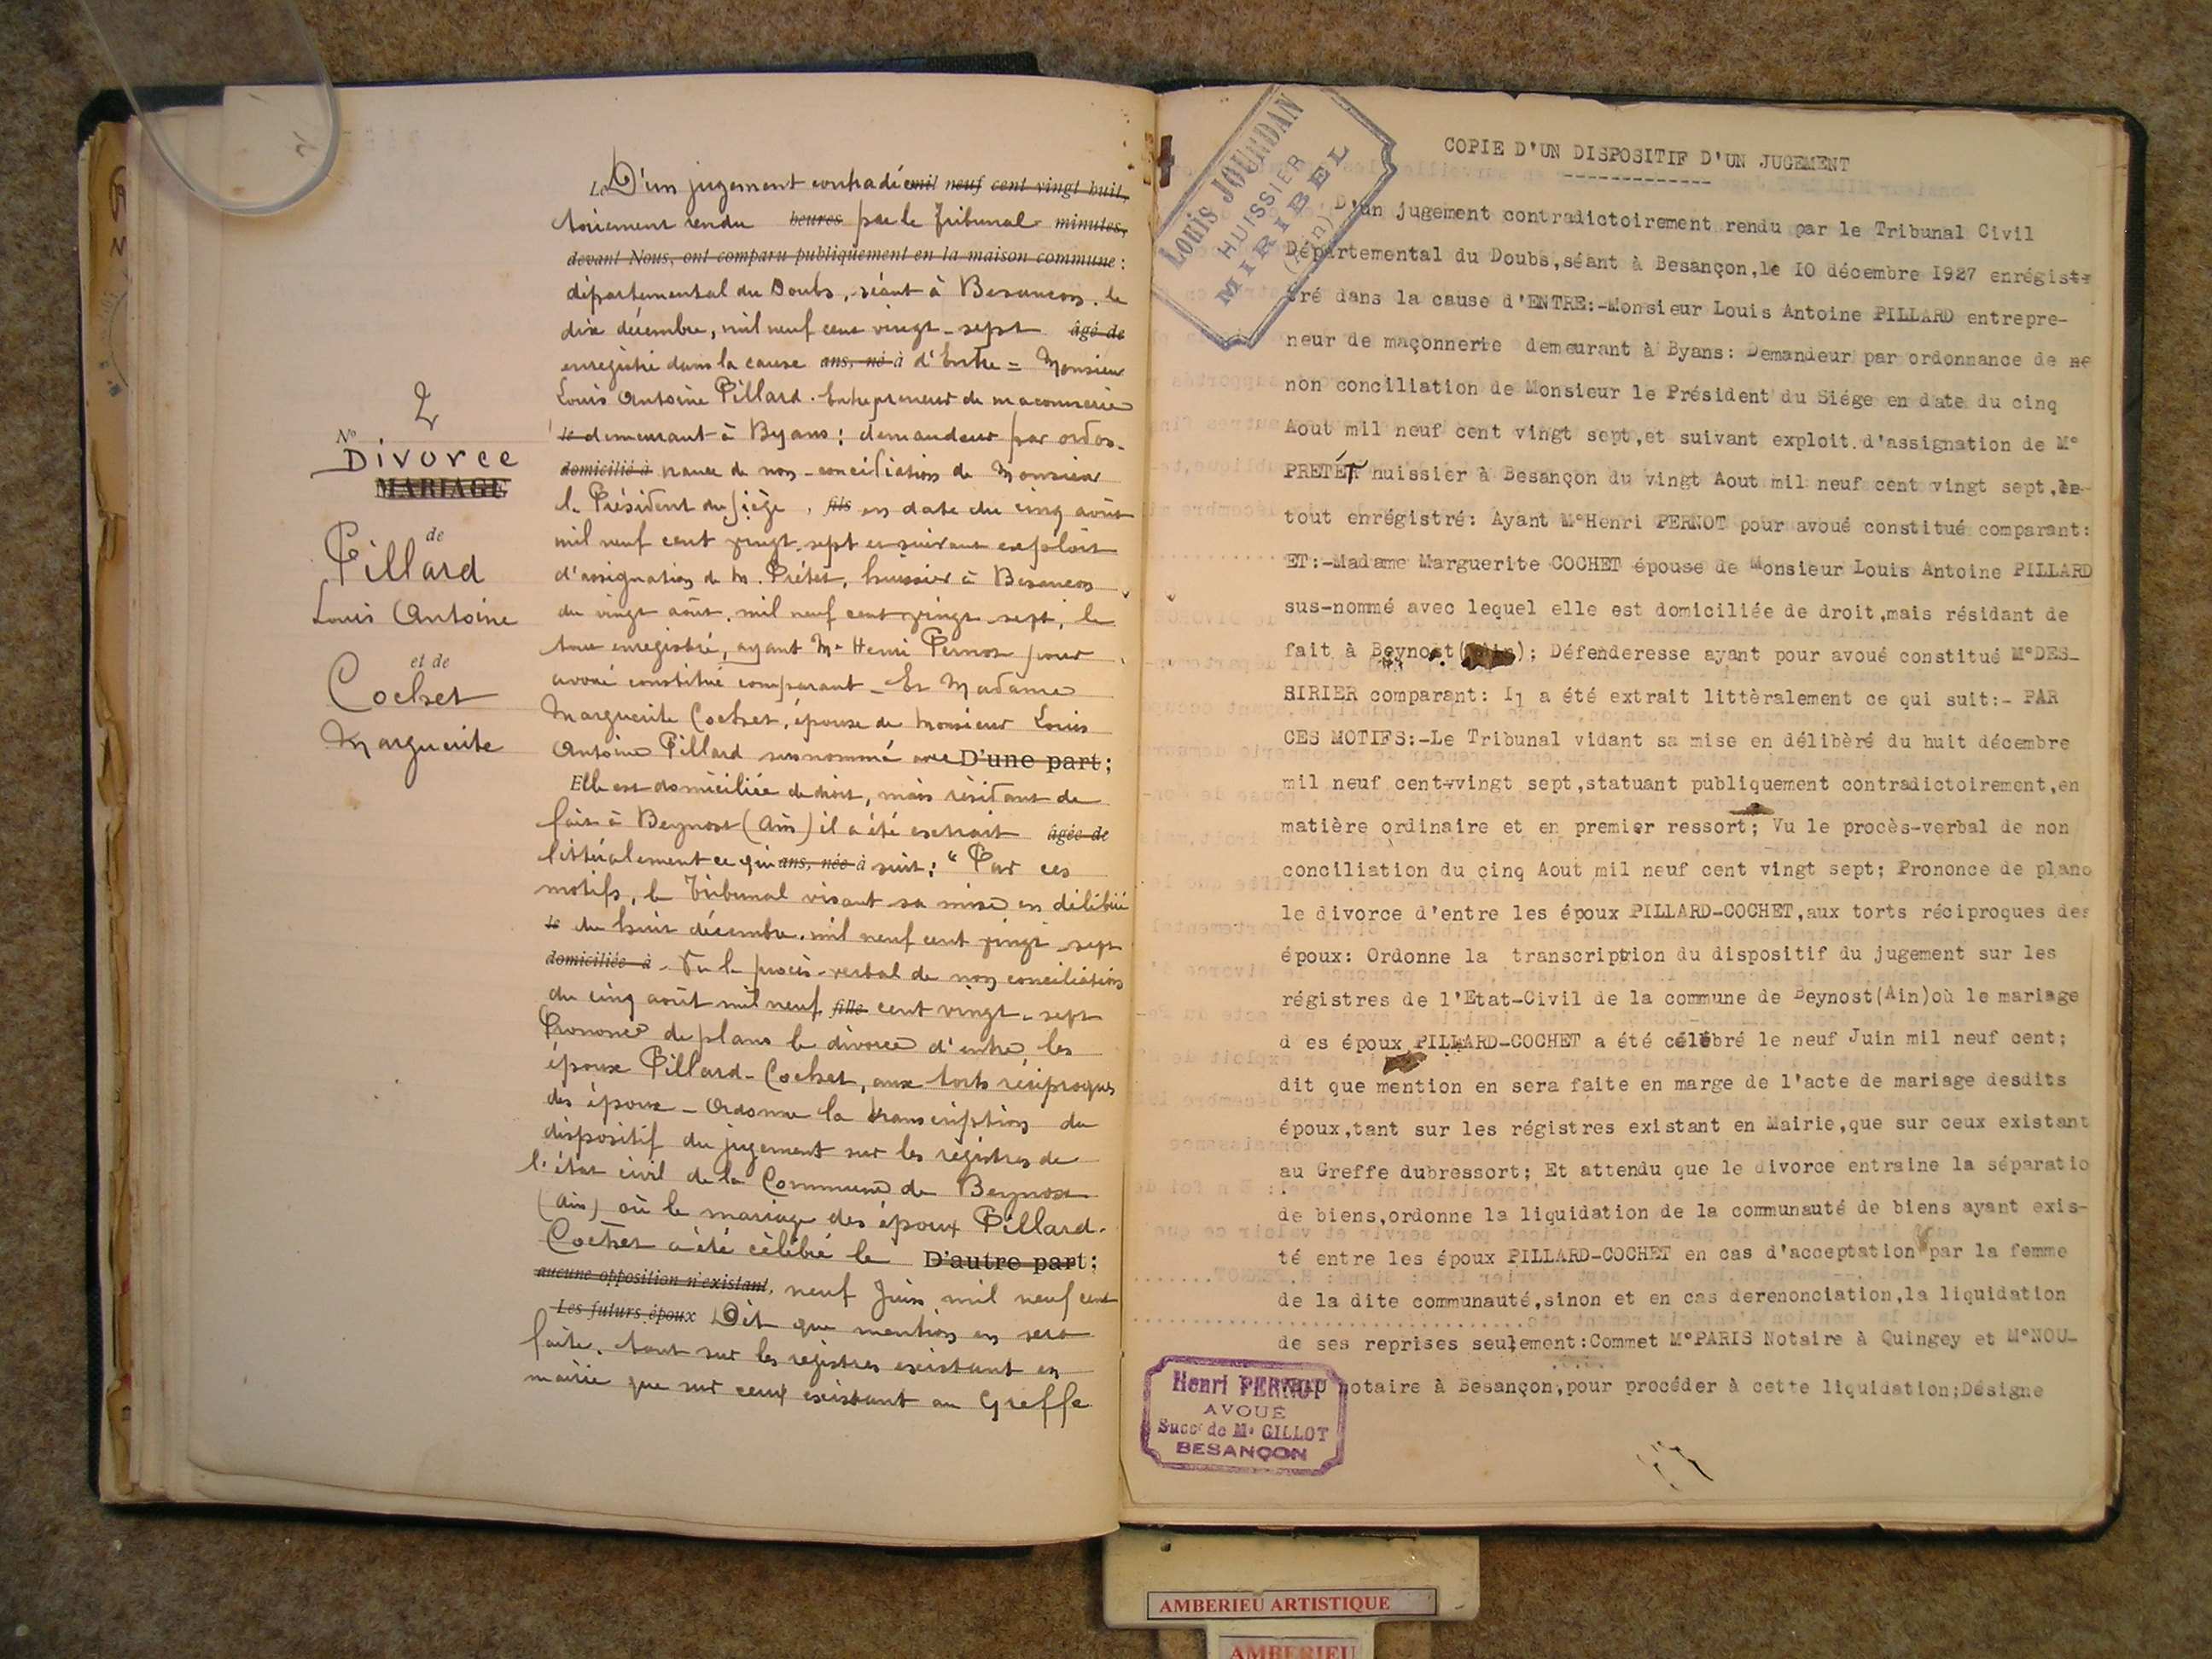 2
N°
Divorce
MARIAGE
de
Pillard
Louis Antoine
et de
Cochet
Marguerite
Le D'un jugement contradic mil neuf cent vingt huit,
toirement rendu heures par le Tribunal minutes,
devant Nous, ont comparu publiquement en la maison commune :
départemental du Doubs, séant à Besançon, le
dix décembre, mil neuf cent vingt-sept âgé de
enregistré dans la cause ans, né à d'Entre = Monsieur
Louis Antoine Pillard. Entrepreneur de maconnerie
le demeurant à Byans ; demandeur par ordon-
domicilié à nance de non-conciliation de Monsieur
le Président du siège, fils en date du cinq août
mil neuf cent vingt-sept et suivant exploit
d'assignation de M. Prétet, huissier à Besancon
du vingt août, mil neuf cent vingt sept, le
tout enregistré, ayant Me Henri Pernot pour
avoué constitué comparant - Et Madame
Marguerite Cochet, épouse de Monsieur Louis
Antoine Pillard susnommé avec D'une part ;
Elle est domiciliée de droit, mais résidant de
fait à Beynost (Ain) il a été extrait âgée de
littéralement ce qui ans, née à suit : "Par ces
motifs, le Tribunal visant sa mise en délibéré
le du huit décembre, mil neuf cent vingt sept
domiciliée à - Vu le procès-verbal de non conciliation
du cinq août mil neuf fille cent vingt-sept
Prononce de plano le divorce d'entre les
époux Pillard-Cochet, aux torts réciproques
des époux - Ordonne la transcription du
dispositif du jugement sur les régistres de
l'état civil de la Commune de Beynost
(Ain) où le mariage des époux Pillard-
Cochet a été célébré le D'autre part ;
aucune opposition n'existant, neuf Juin mil neuf cent
Les futurs époux Dit que mention en sera
faite, tant sur les registres existant en
mairie que sur ceux existant au Greffe
Louis JOURDAN
HUISSIER
MIRIBEL
(Ain)
COPIE D'UN DISPOSITIF D'UN JUGEMENT
-------------
D'un jugement contradictoirement rendu par le Tribunal Civil
Départemental du Doubs,séant à Besançon,le 10 décembre 1927 enrégist-
tré dans la cause d'ENTRE:-Monsieur Louis Antoine PILLARD entrepre-
neur de maçonnerie demeurant à Byans: Demandeur par ordonnance de ne
non conciliation de Monsieur le Président du Siége en date du cinq
Aout mil neuf cent vingt sept,et suivant exploit.d'assignation de M°
PRETÉT huissier à Besançon du vingt Aout mil neuf cent vingt sept,le
tout enrégistré: Ayant M°Henri PERNOT pour avoué constitué comparant:
ET:-Madame Marguerite COCHET épouse de Monsieur Louis Antoine PILLARD
sus-nommé avec lequel elle est domiciliée de droit,mais résidant de
fait à Beynost(Ain); Défenderesse ayant pour avoué constitué M°DES-
SIRIER comparant: Il a été extrait littèralement ce qui suit:- PAR
CES MOTIFS:-Le Tribunal vidant sa mise en délibèré du huit décembre
mil neuf cent-vingt sept,statuant publiquement contradictoirement,en
matière ordinaire et en premier ressort; Vu le procès-verbal de non
conciliation du cinq Aout mil neuf cent vingt sept; Prononce de plano
le divorce d'entre les époux PILLARD-COCHET,aux torts réciproques des
époux: Ordonne la transcription du dispositif du jugement sur les
régistres de l'Etat-Civil de la commune de Beynost(Ain)où le mariage
d es époux PILLARD-COCHET a été célébré le neuf Juin mil neuf cent;
dit que mention en sera faite en marge de l'acte de mariage desdits
époux,tant sur les régistres existant en Mairie,que sur ceux existant
au Greffe dubressort; Et attendu que le divorce entraine la séparatio
de biens,ordonne la liquidation de la communauté de biens ayant exis-
té entre les époux PILLARD-COCHET en cas d'acceptation par la femme
de la dite communauté,sinon et en cas derenonciation,la liquidation
de ses reprises seulement:Commet M°PARIS Notaire à Quingey et M°NOU-
notaire à Besançon,pour procéder à cette liquidation;Désigne
Henri PERNOT
AVOUÉ
Succr de Me GILLOT
BESANÇON
AMBERIEU ARTISTIQUE
AMBERIEU